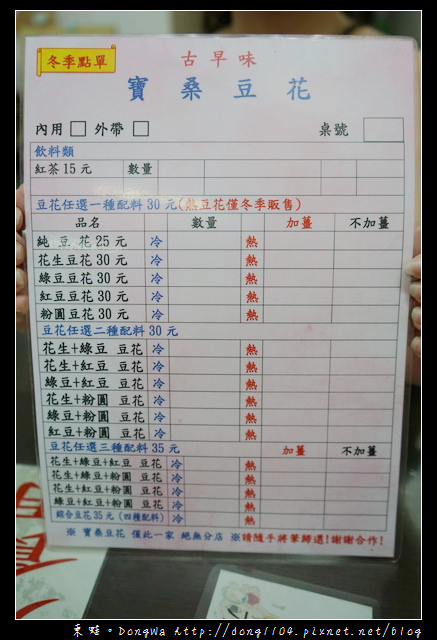 冬季點單
古早味
寶桑豆花
內用□ 外帶□ 桌號
飲料類
紅茶15元 數量
豆花任選一種配料30元(熱豆花僅冬季販售)
品名 數量 加薑 不加薑
純豆花25元 冷 熱
花生豆花30元 冷 熱
綠豆豆花30元 冷 熱
紅豆豆花30元 冷 熱
粉圓豆花30元 冷 熱
豆花任選二種配料30元
花生+綠豆 豆花 冷 熱
花生+紅豆 豆花 冷 熱
綠豆+紅豆 豆花 冷 熱
花生+粉圓 豆花 冷 熱
綠豆+粉圓 豆花 冷 熱
紅豆+粉圓 豆花 冷 熱
豆花任選三種配料35元 加薑 不加薑
花生+綠豆+紅豆 豆花 冷 熱
花生+綠豆+粉圓 豆花 冷 熱
花生+紅豆+粉圓 豆花 冷 熱
綠豆+紅豆+粉圓 豆花 冷 熱
綜合豆花35元(四種配料) 冷 熱
※ 寶桑豆花 僅此一家 絕無分店 ※請隨手將筆歸還!謝謝合作!
東蛙。DongWa http://dong1104.pixnet.net/blog